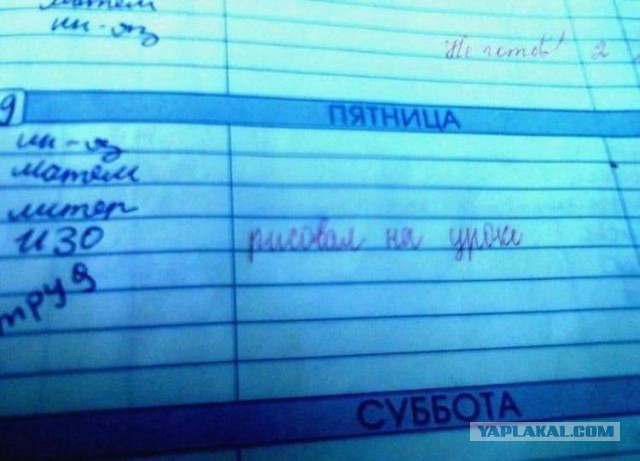 матем
ин-яз
Не готов! 2
9
ПЯТНИЦА
ин-яз
матем
литер
ИЗО рисовал на уроке
труд
СУББОТА
YAPLAKAL.COM